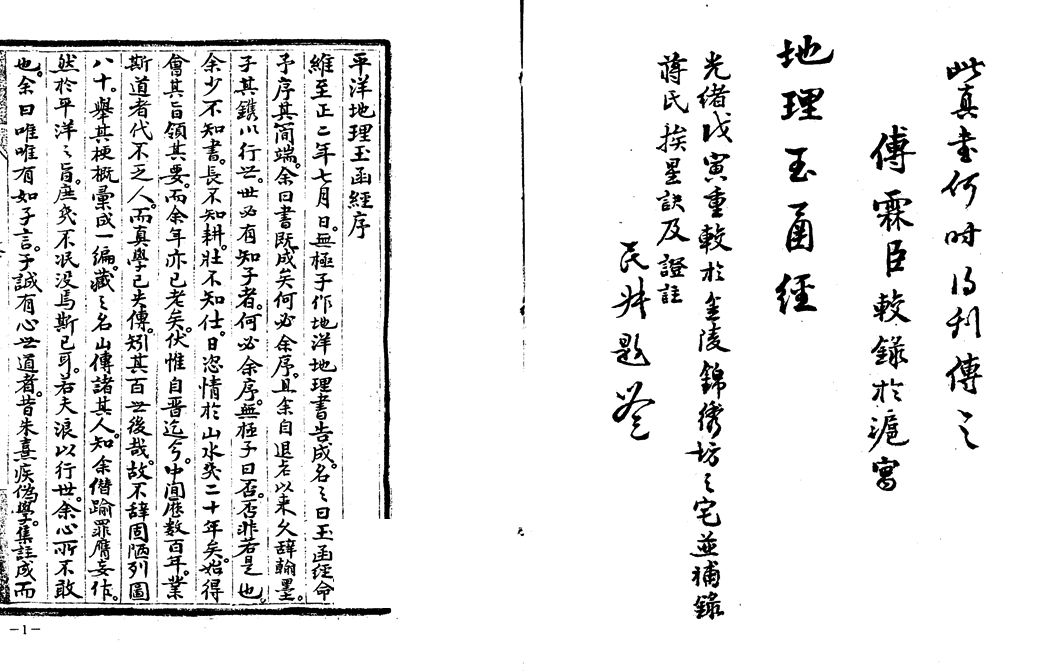 此真書何时乃刊傳之
傅霖臣較錄於滬寓
地理玉函經
光緒戊寅重較於金陵錦綉坊之宅並補錄
蔣氏挨星訣及證註
民
題
平洋地理玉函經序
維至正二年七月日。無極子作地洋地理書告成。名之曰玉函經命
予序其簡端。余曰書既成矣何必余序。且余自退老以来久辞翰墨。
子其鐫以行世。世必有知子者。何必余序。無極子曰否。否非若是也
余少不知書。長不知耕。壯不知仕。日恣情於山水矣二十年矣。始得
會其旨領其要。而余年亦已老矣。伏惟自晋迄今。中间歷数百年。業
斯道者代不乏人。而真學已失傳。矧其百世後哉。故不辞固陋列圖
八十。舉其梗概彙成一编。藏之名山傳諸其人。知余僭踰罪膺妄作。
然於平洋之旨。庶㡬不泯没焉斯已可。若夫浪以行世。余心所不敢
也。余曰唯唯有如子言。予誠有心世道者。昔朱熹疾偽學。集註成而
－1－